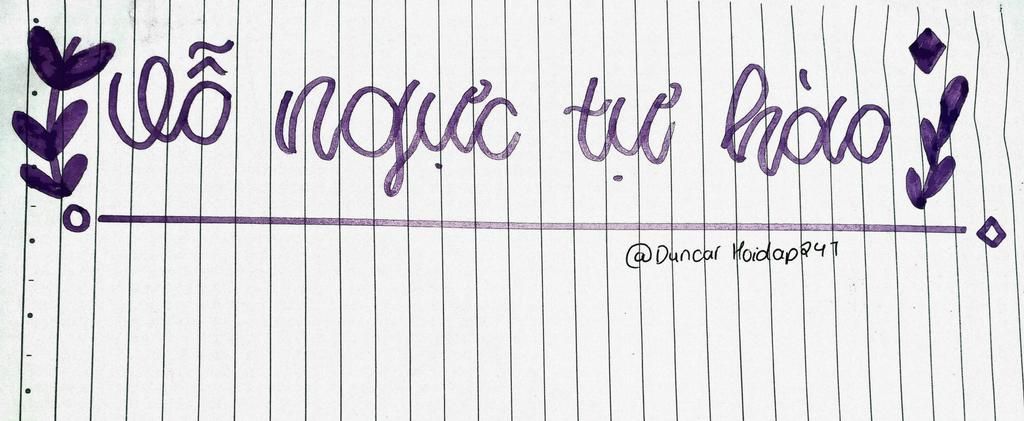 Vỗ ngực tự hào
@Duncar Hoidap247